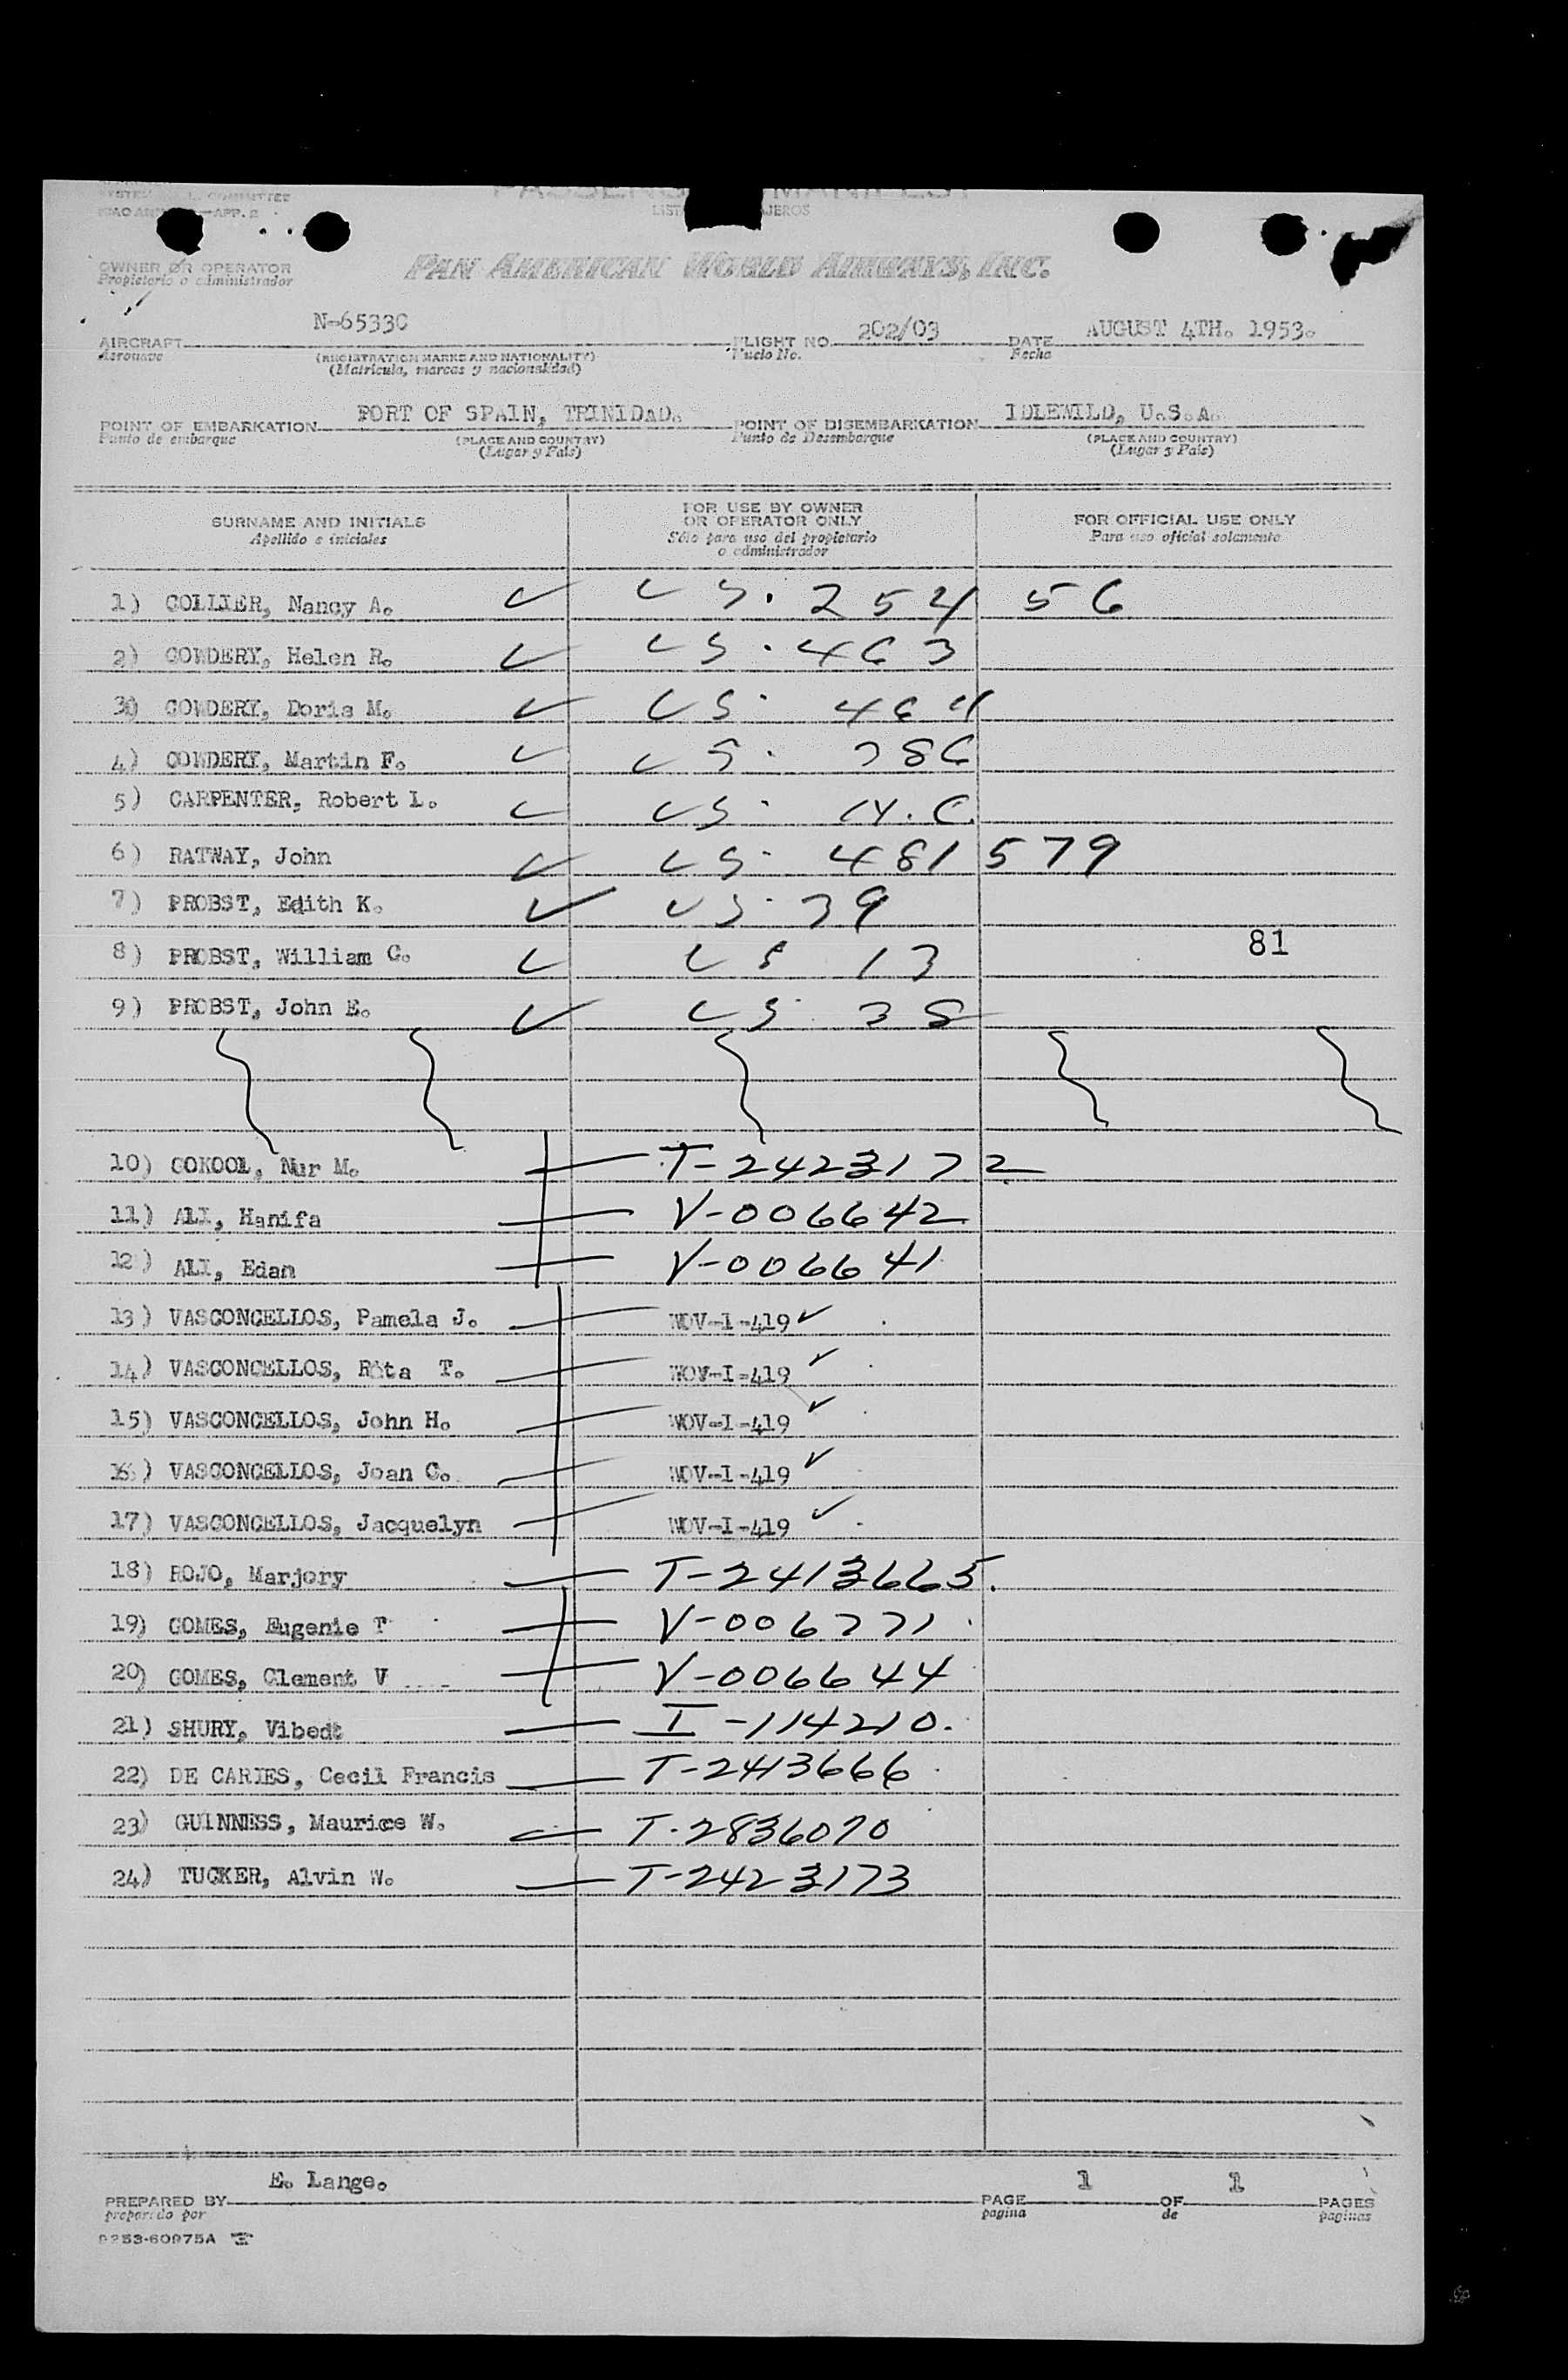 OWNER OR OPERATOR
Propietario o administrador
PAN AMERICAN WORLD AIRWAYS, INC.
AIRCRAFT N-6533C FLIGHT NO. 202/03 DATE AUGUST 4TH. 1953.
Aeronave (REGISTRATION MARKS AND NATIONALITY) Vuelo No. Fecha
(Matricula, marcas y nacionalidad)
POINT OF EMBARKATION PORT OF SPAIN, TRINIDAD. POINT OF DISEMBARKATION IDLEWILD, U.S.A.
Punto de embarque (PLACE AND COUNTRY) Punto de Desembarque (PLACE AND COUNTRY)
(Lugar y Pais) (Lugar y Pais)
SURNAME AND INITIALS FOR USE BY OWNER OR OPERATOR ONLY FOR OFFICIAL USE ONLY
Apellido e iniciales Sólo para uso del propietario o administrador Para uso oficial solamente
1) COLLIER, Nancy A. US. 254 56
2) COWDERY, Helen R. US. 463
3) COWDERY, Doris M. US. 464
4) COWDERY, Martin F. US. 386
5) CARPENTER, Robert L. US.
6) RATWAY, John US. 481 579
7) PROBST, Edith K. US. 39
8) PROBST, William C. US 13
81
9) PROBST, John E. US. 38
10) GOKOOL, Nur M. T-2423172
11) ALI, Hanifa V-006642
12) ALI, Edan V-006641
13) VASCONCELLOS, Pamela J. WOV-I-419
14) VASCONCELLOS, Rita T. WOV-I-419
15) VASCONCELLOS, John H. WOV-I-419
16) VASCONCELLOS, Joan C. WOV-I-419
17) VASCONCELLOS, Jacquelyn WOV-I-419
18) ROJO, Marjory T-2413665.
19) GOMES, Eugenie T V-006771
20) GOMES, Clement V V-006644
21) SHURY, Vibedt I-114210.
22) DE CARIES, Cecil Francis T-2413666
23) GUINNESS, Maurice W. T-2836070
24) TUCKER, Alvin W. T-2423173
E. Lange.
PREPARED BY PAGE 1 OF 1 PAGES
preparado por pagina de paginas
9253-60975A